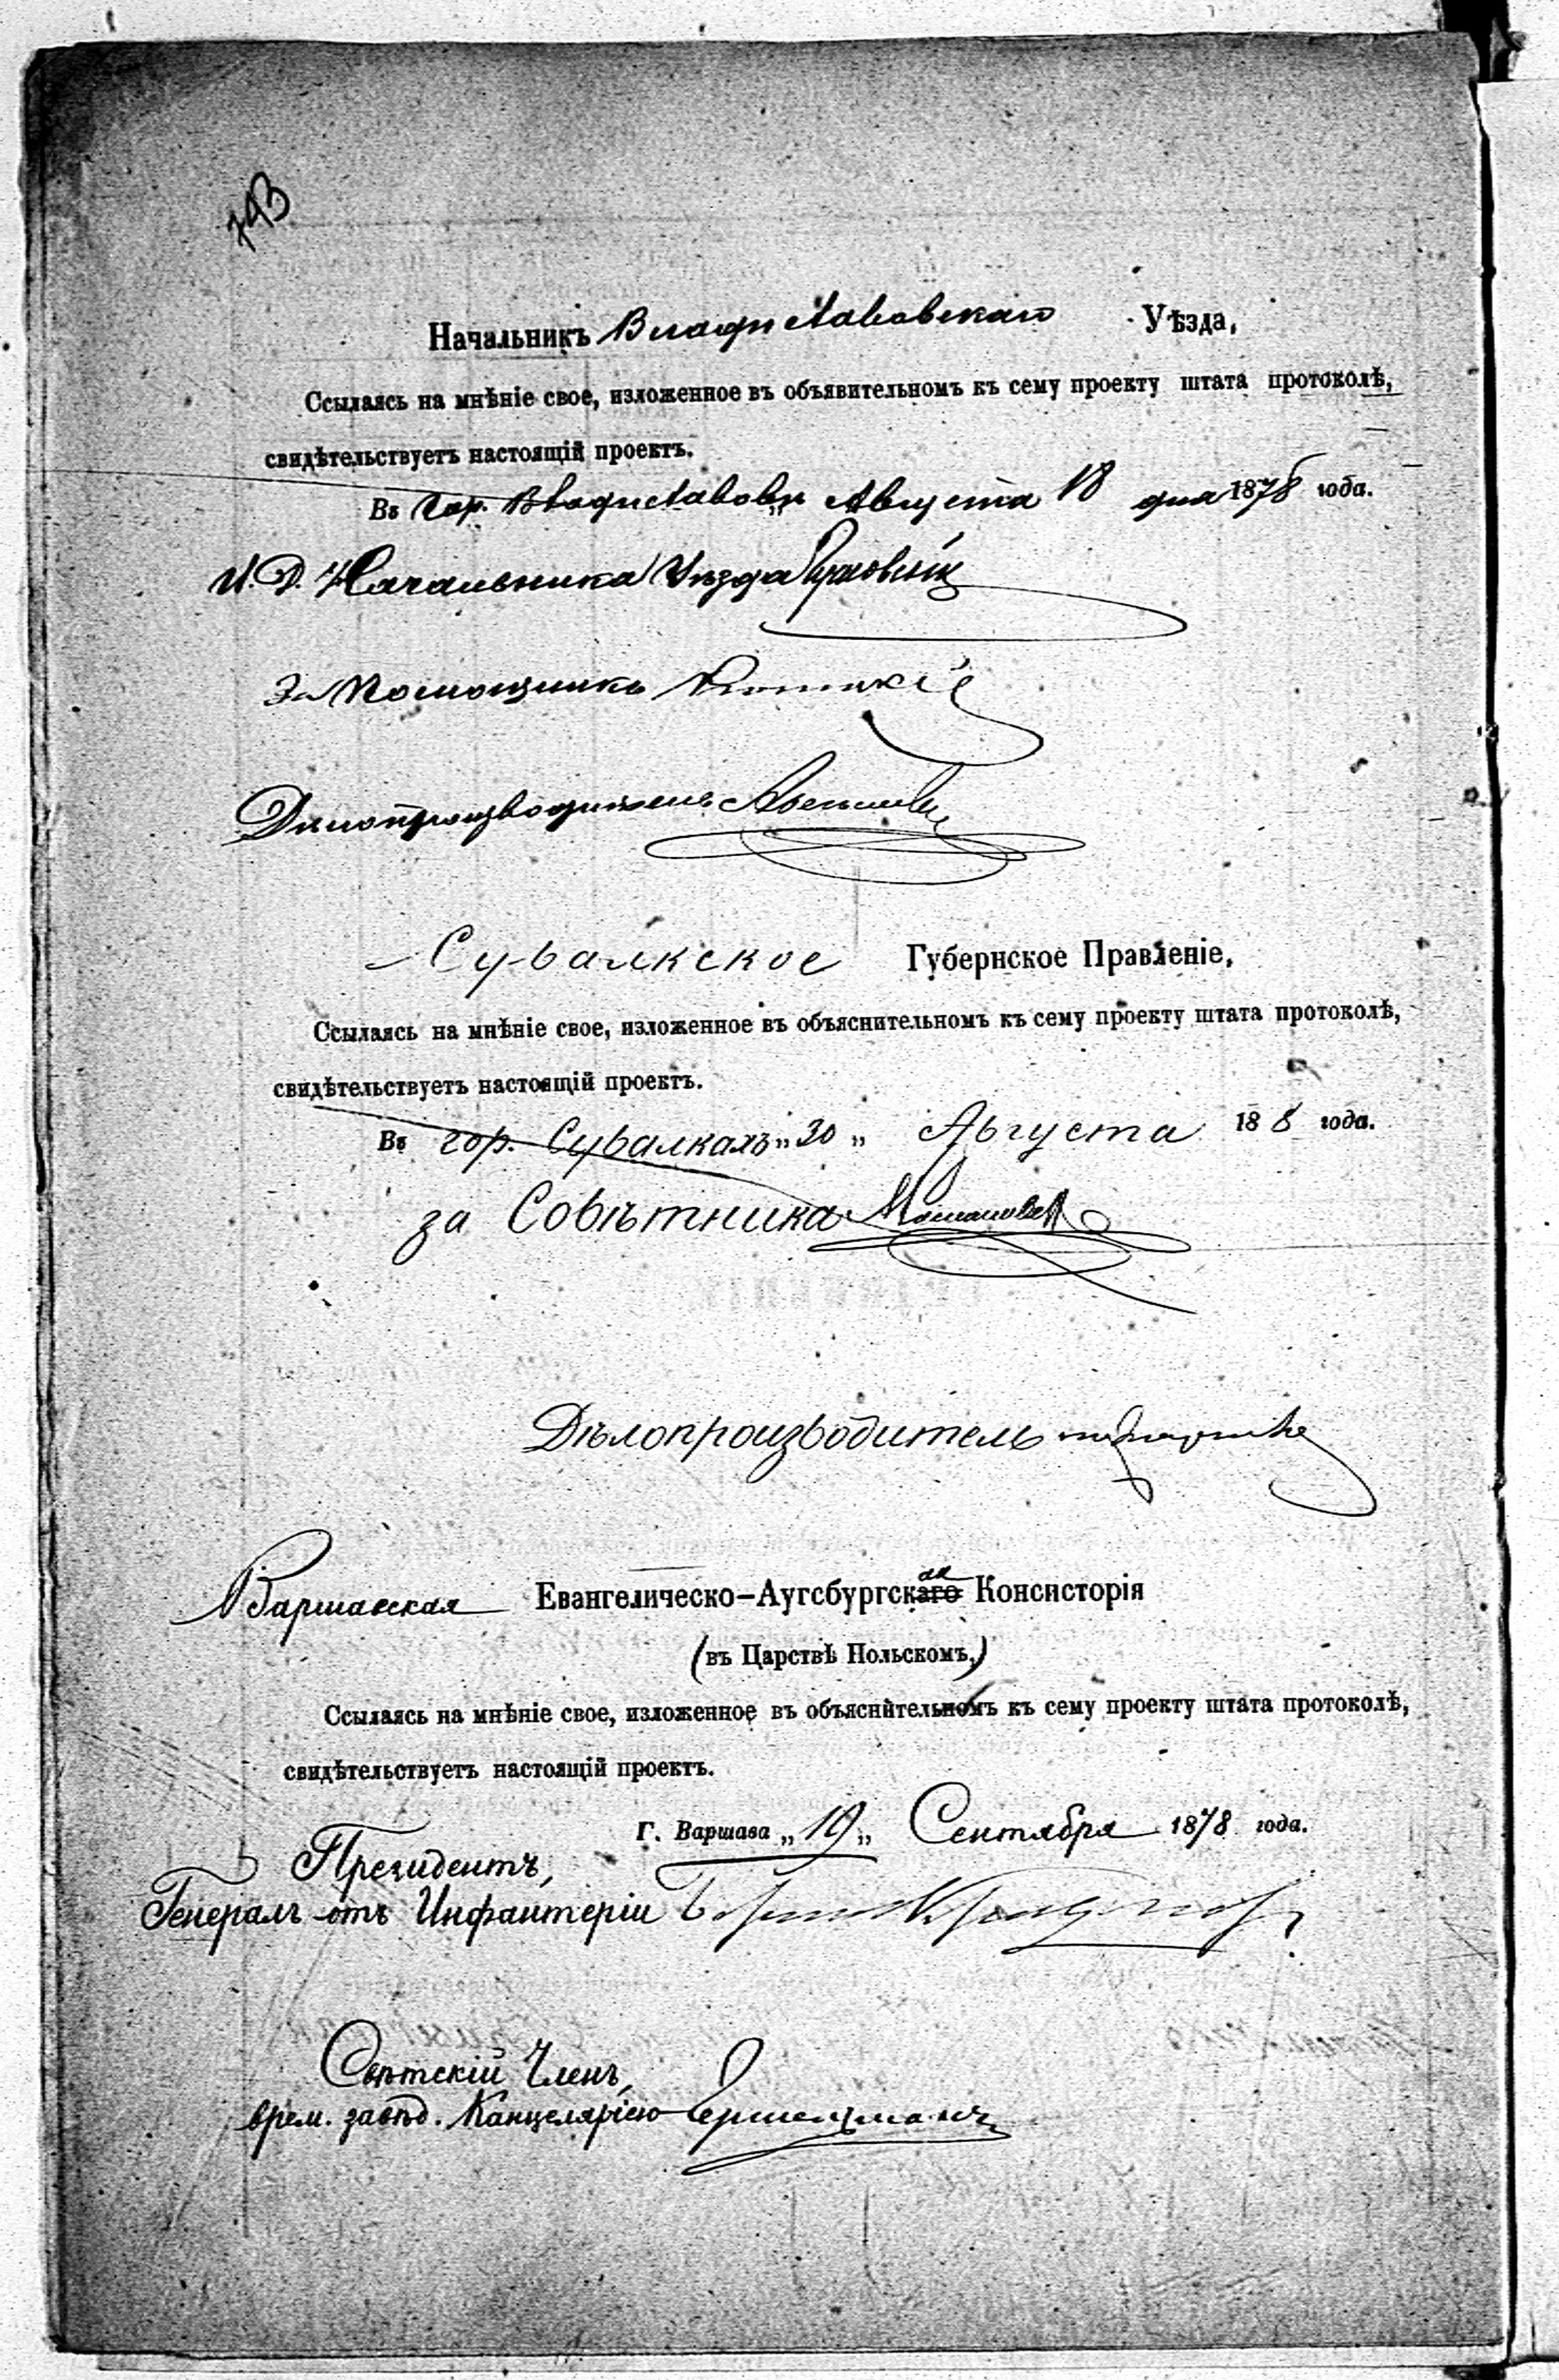 793
Начальникъ Владиславовскаго Уѣзда,
Ссылаясь на мнѣніе свое, изложенное въ объявительномъ къ сему проекту штата протоколѣ,
свидѣтельствуетъ настоящій проектъ.
Въ гор. Владиславовѣ „ Августа 18 дня 1878 года.
И. Д. Начальника Уѣзда
За Помощникъ
Дѣлопроизводитель
Сувалкское Губернское Правленіе,
Ссылаясь на мнѣніе свое, изложенное въ объяснительномъ къ сему проекту штата протоколѣ,
свидѣтельствуетъ настоящій проектъ.
Въ гор. Сувалкахъ „ 30 „ Августа 18 8 года.
за Совѣтника
Дѣлопроизводитель
Варшавская Евангелическо–Аугсбургская Консисторія
(въ Царствѣ Польскомъ,)
Ссылаясь на мнѣніе свое, изложенное въ объяснительномъ къ сему проекту штата протоколѣ,
свидѣтельствуетъ настоящій проектъ.
Г. Варшава „ 19 „ Сентября 1878 года.
Президентъ,
Генералъ отъ Инфантеріи
Свѣтскій Членъ,
врем. завѣд. Канцеляріею